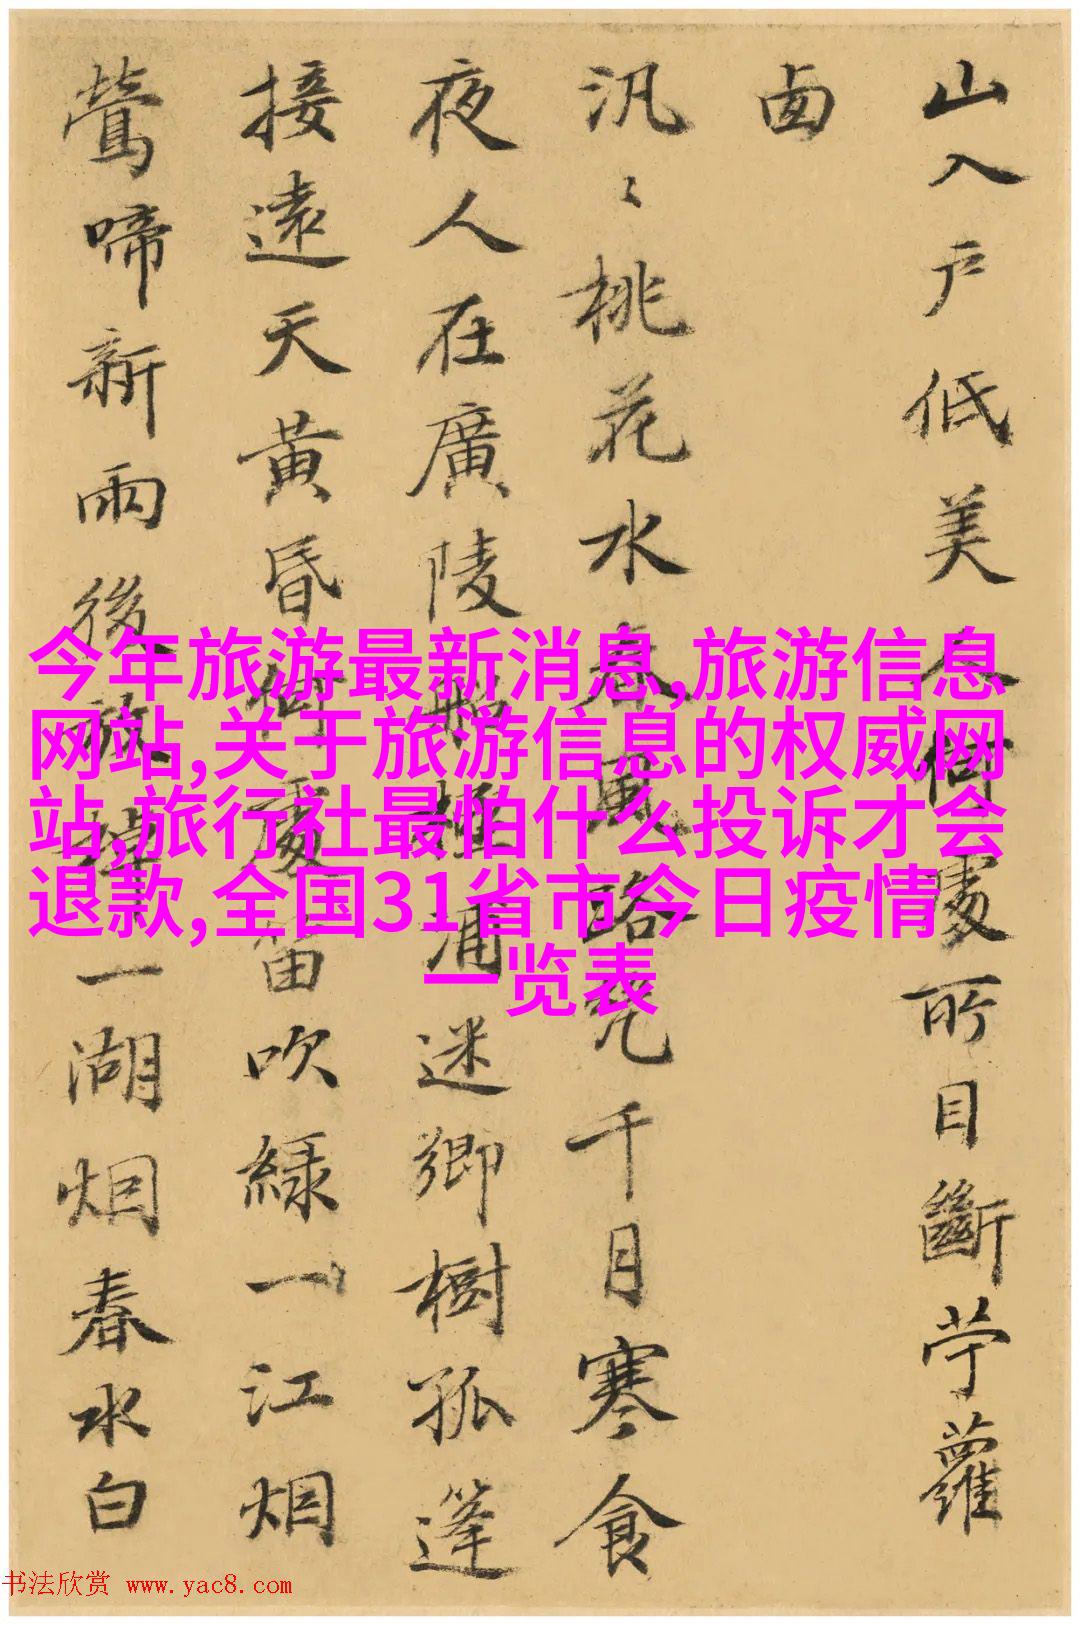 山入户低美人何處所目斷苧蘿
汎〻桃花水春風路幾千月寒食
夜人在廣陵船煙浦迷鄉樹孤篷
接遠天黄昏何處笛吹緑一江烟
鶯啼新雨後放棹一湖烟春水白
今年旅游最新消息,旅游信息
网站,关于旅游信息的权威网
站,旅行社最怕什么投诉才会
退款,全国31省市今日疫情
一览表
书法欣赏 www.yac8.com